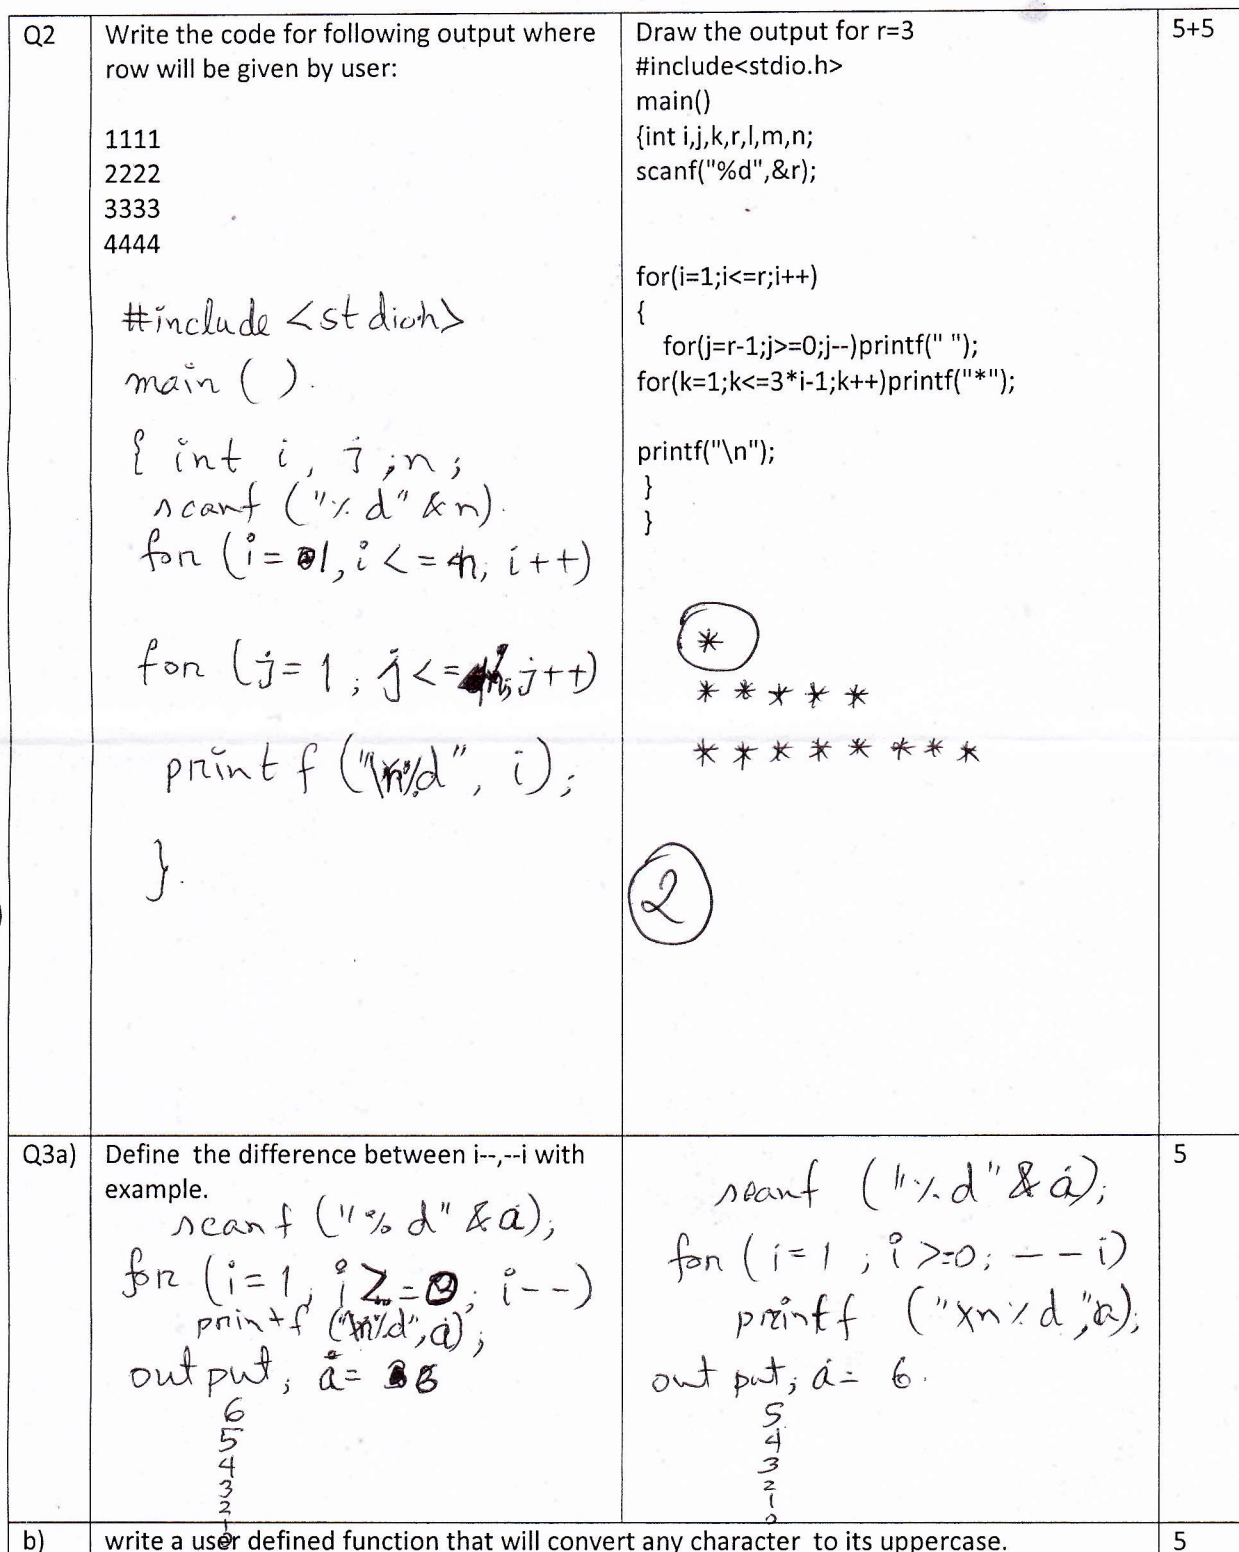 Q2
Write the code for following output where
row will be given by user:
1111
2222
3333
4444
#include <stdioh>
main ( ).
{ int i, j ; n ;
scanf ("% d" & n).
for (i = 1, i <= n; i++)
for (j = 1 ; j <= ; j++)
print f ("\n%d", i);
}.
Draw the output for r=3
#include<stdio.h>
main()
{int i,j,k,r,l,m,n;
scanf("%d",&r);
for(i=1;i<=r;i++)
{
for(j=r-1;j>=0;j--)printf(" ");
for(k=1;k<=3*i-1;k++)printf("*");
printf("\n");
}
}
*
* * * * *
* * * * * * * *
2
5+5
Q3a)
Define the difference between i--,--i with
example.
scanf ("% d" & a);
for (i = 1 ; i >= 0 ; i--)
printf ("\n%d", a);
out put; a = 6
6
5
4
3
2
1
0
scanf ("% d" & a);
for ( i = 1 ; i >= 0; -- i)
printf ("\n % d", a);
out put; a = 6.
5
4
3
2
1
0
5
b)
write a user defined function that will convert any character to its uppercase.
5